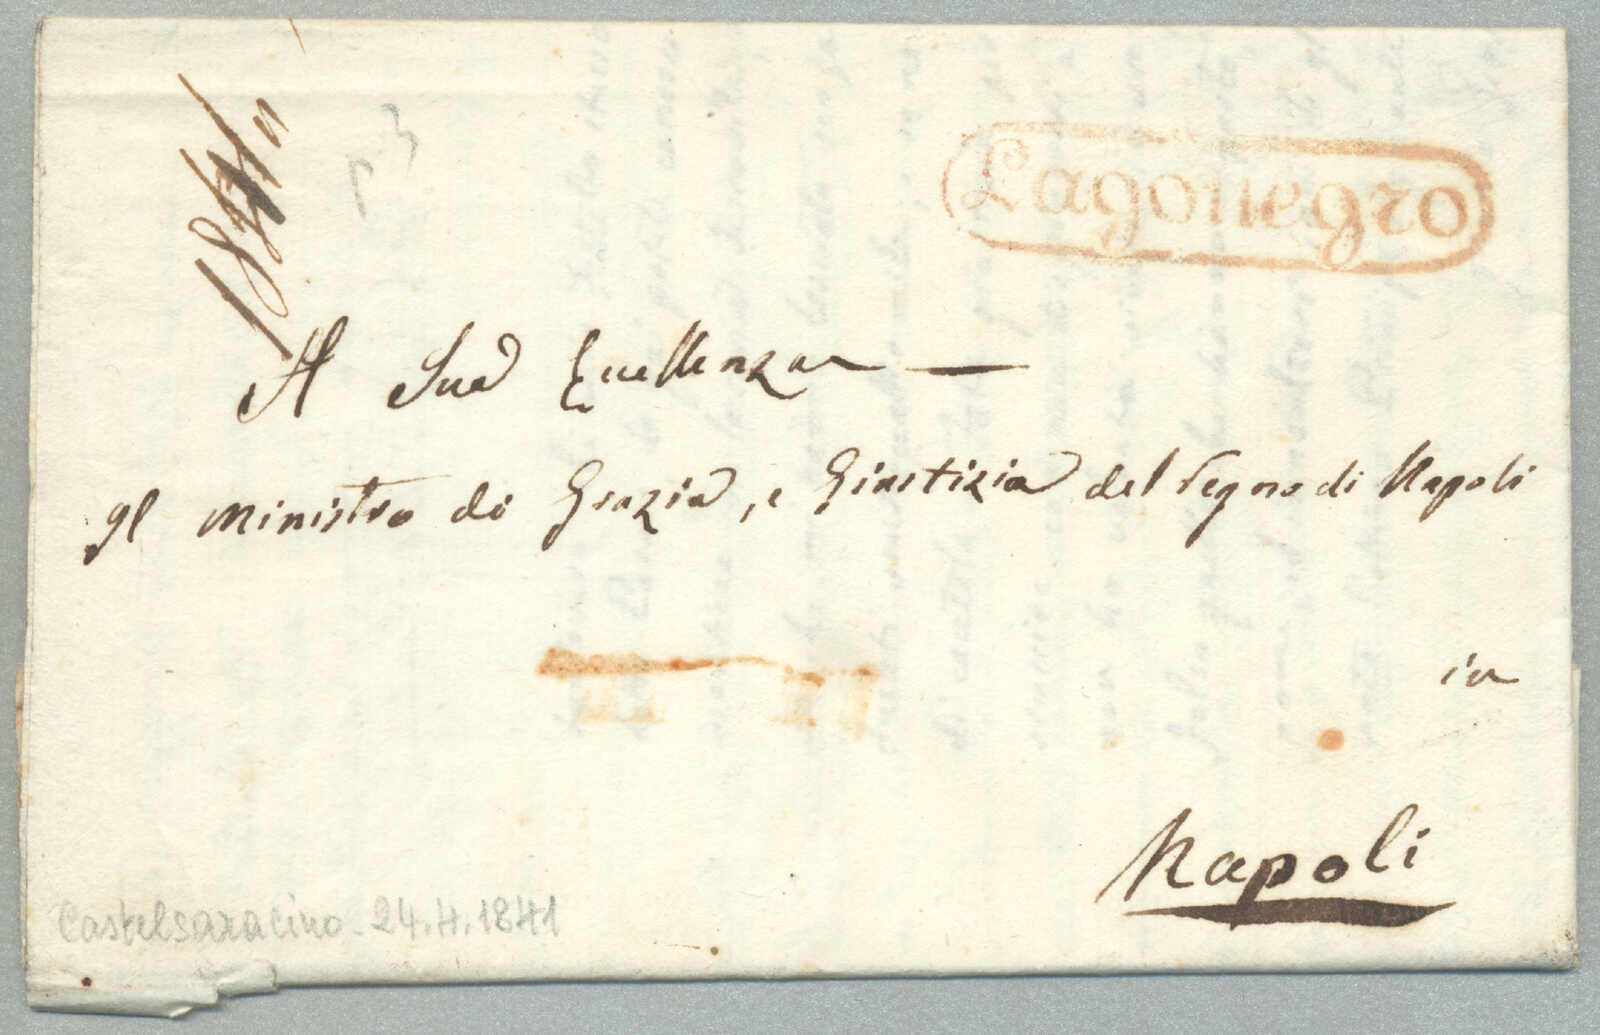 Lagonegro
A Sua Eccellenza
Il Ministro di Grazia, e Giustizia del Regno di Napoli
in
Napoli
Castelsaracino - 24.4.1841